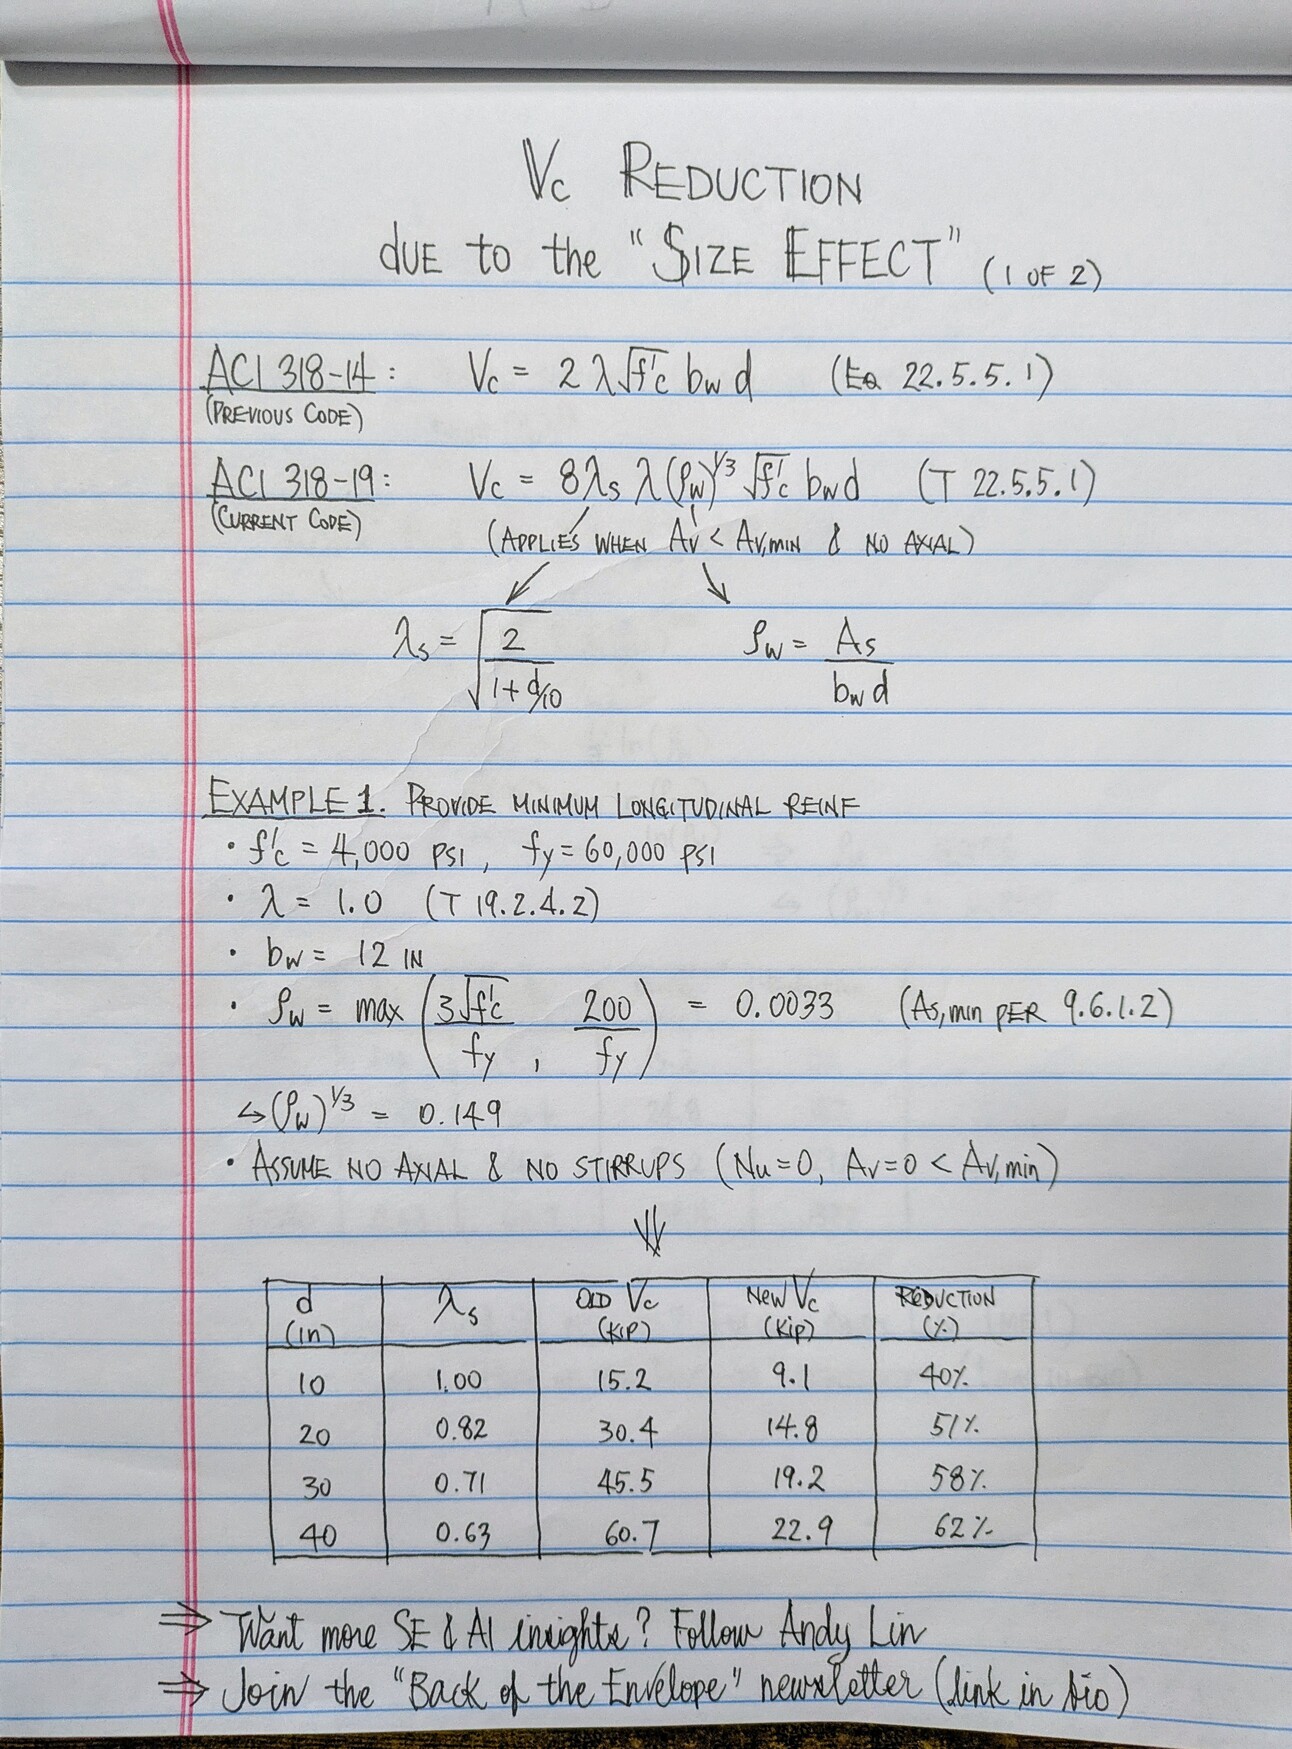 Vc REDUCTION
dUE to the "SIZE EFFECT" (1 OF 2)
ACI 318-14: Vc = 2 λ √f'c bw d (EQ 22.5.5.1)
(PREVIOUS CODE)
ACI 318-19: Vc = 8 λs λ (ρw)^1/3 √f'c bw d (T 22.5.5.1)
(CURRENT CODE) (APPLIES WHEN Av < Av,MIN & NO AXIAL)
λs = √(2 / (1 + d/10)) ρw = As / bw d
EXAMPLE 1. PROVIDE MINIMUM LONGITUDINAL REINF
• f'c = 4,000 PSI, fy = 60,000 PSI
• λ = 1.0 (T 19.2.4.2)
• bw = 12 IN
• ρw = max (3√f'c / fy, 200 / fy) = 0.0033 (As,min PER 9.6.1.2)
↳ (ρw)^1/3 = 0.149
• ASSUME NO AXIAL & NO STIRRUPS (Nu=0, Av=0 < Av,min)
d (in) λs OLD Vc (KIP) NEW Vc (Kip) REDUCTION (%)
10 1.00 15.2 9.1 40%
20 0.82 30.4 14.8 51%
30 0.71 45.5 19.2 58%
40 0.63 60.7 22.9 62%
⇒ Want more SE & AI insights? Follow Andy Lin
⇒ Join the "Back of the Envelope" newsletter (link in bio)